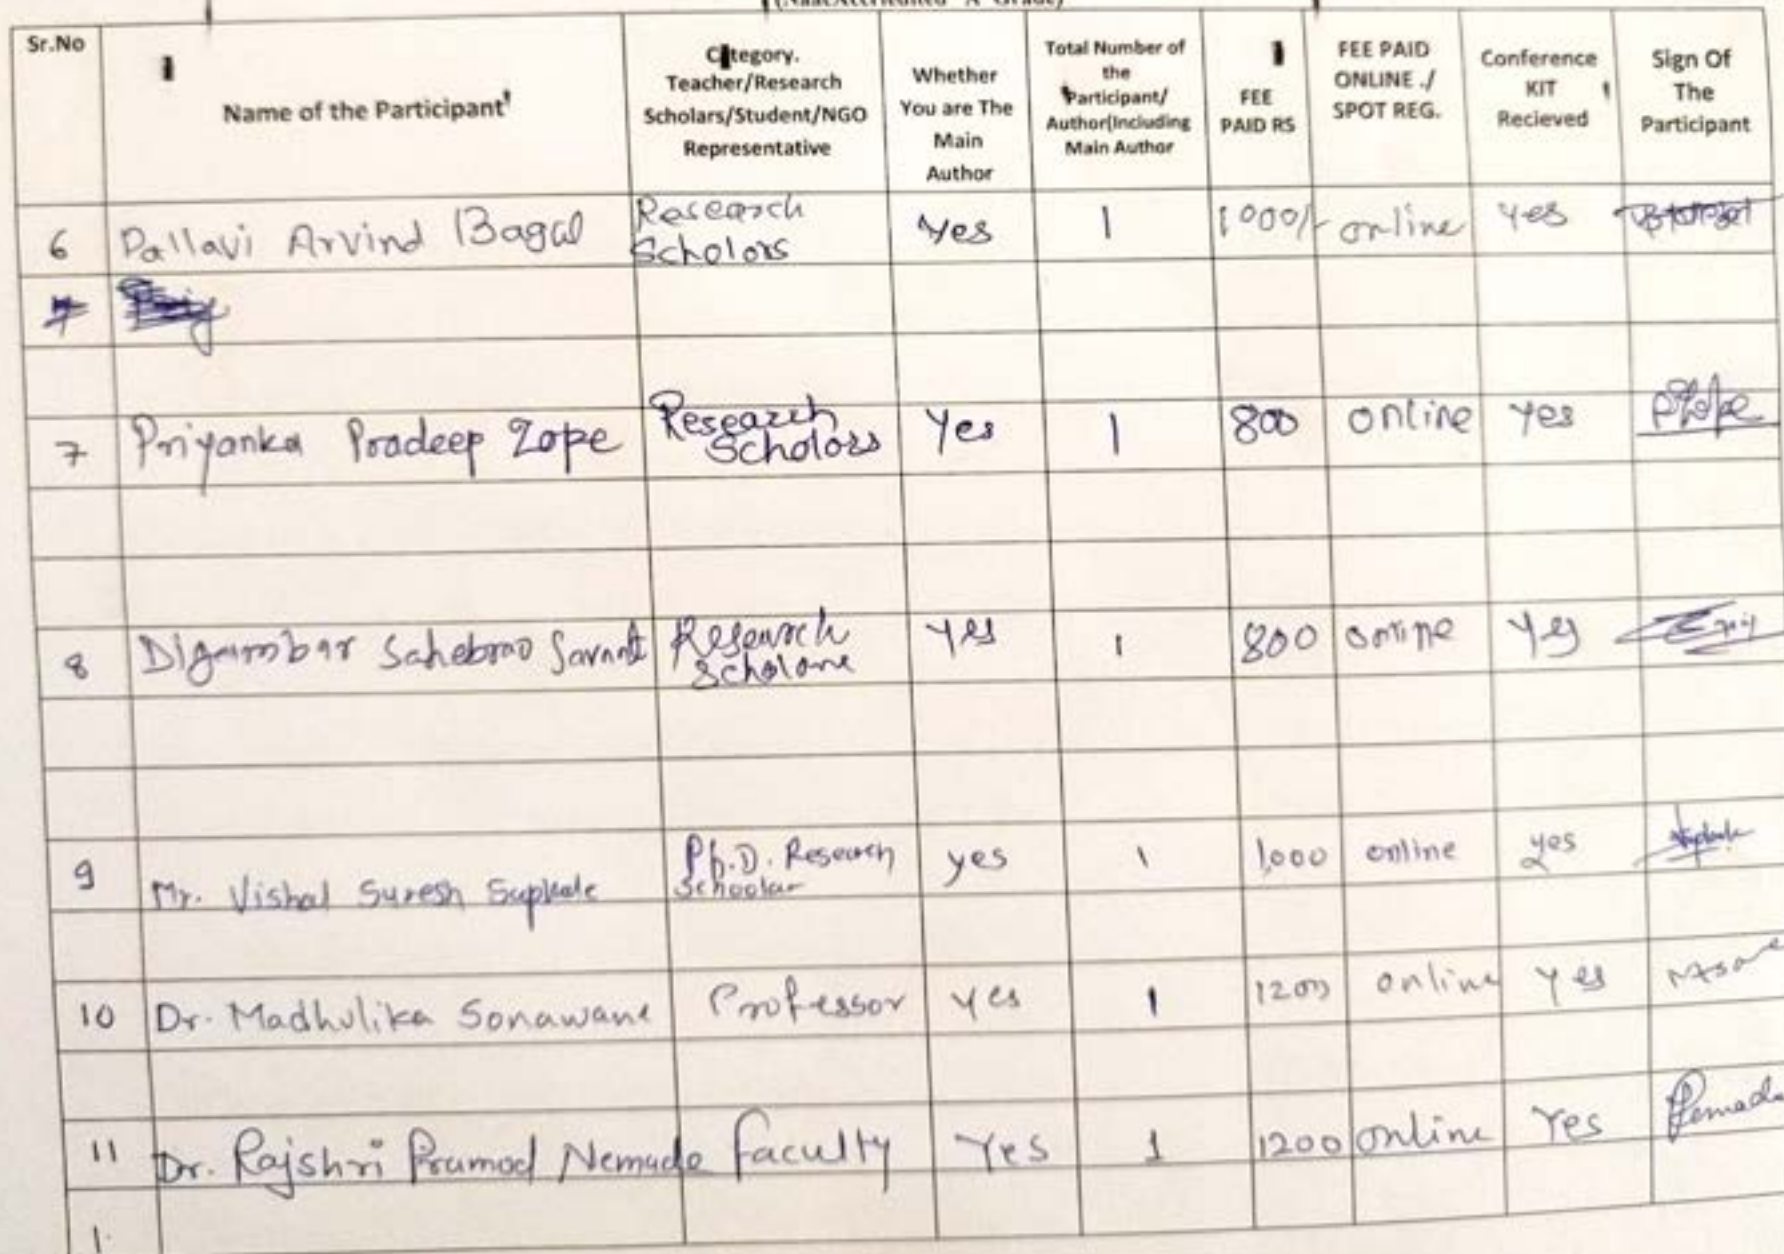 (NaacAccredited "A"Grade)
Sr.No
Name of the Participant
Category.
Teacher/Research
Scholars/Student/NGO
Representative
Whether
You are The
Main
Author
Total Number of
the
Participant/
Author(Including
Main Author
FEE
PAID RS
FEE PAID
ONLINE ./
SPOT REG.
Conference
KIT
Recieved
Sign Of
The
Participant
6 Pallavi Arvind Bagal Research Scholors Yes 1 1000/- online yes
7
7 Priyanka Pradeep Zope Research Scholors Yes 1 800 online yes PZope
8 Digambar Sahebrao Savant Research Scholare yes 1 800 online yes
9 Mr. Vishal Suresh Supkale Ph.D. Research Schoolar yes 1 1,000 online yes
10 Dr. Madhulika Sonawane Professor yes 1 1200 online yes
11 Dr. Rajshri Pramod Nemade faculty Yes 1 1200 online Yes
1.